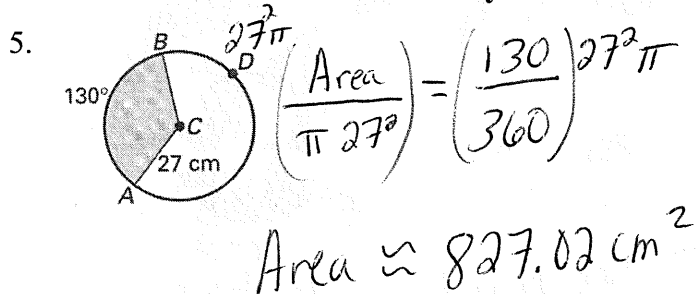 5.
B
27²π
D
130°
C
27 cm
A
(Area / π 27²) = (130 / 360) 27² π
Area ≈ 827.02 cm²